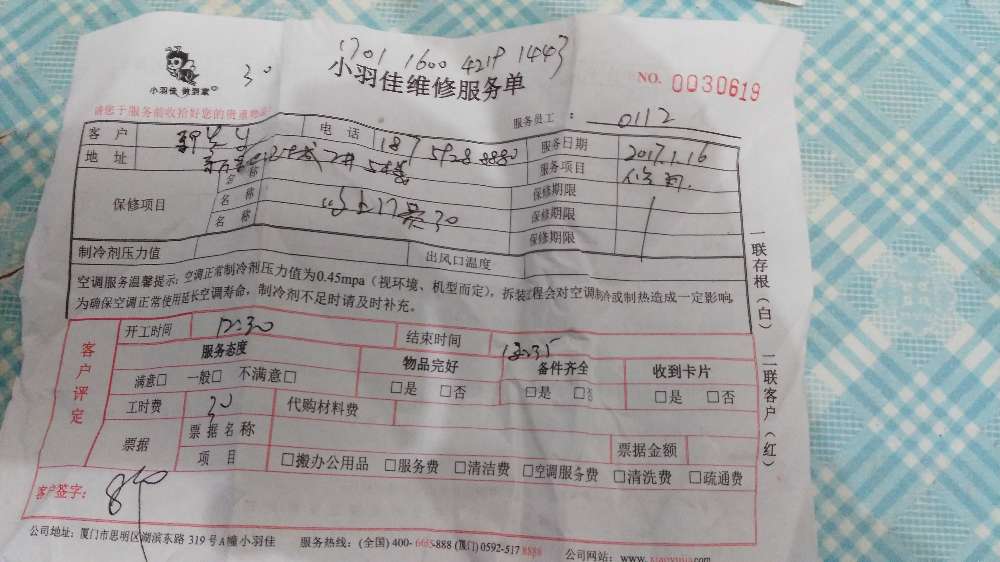 1701 1600 4219 1443
小羽佳 做到家
30
小羽佳维修服务单
NO. 0030619
请您于服务前收拾好您的贵重物品
服务员工: 0112
客户 电话 187 5928 8880 服务日期 2017.1.16
地址 服务项目
保修项目 名称 保修期限
名称 30 保修期限
名称 保修期限
制冷剂压力值 出风口温度
空调服务温馨提示:空调正常制冷剂压力值为0.45mpa(视环境、机型而定),拆装过程会对空调制冷或制热造成一定影响,
为确保空调正常使用延长空调寿命,制冷剂不足时请及时补充。
一联存根(白) 二联客户(红)
客户评定
开工时间 12:30 结束时间 12:35
服务态度 物品完好 备件齐全 收到卡片
满意□ 一般□ 不满意□ □是 □否 □是 □否 □是 □否
工时费 30 代购材料费
票据 票据名称 票据金额
项目 □搬办公用品 □服务费 □清洁费 □空调服务费 □清洗费 □疏通费
客户签字:
公司地址:厦门市思明区湖滨东路319号A幢小羽佳 服务热线:(全国)400-6655-888 (厦门)0592-517 8888 公司网站:www.xiaoyujia.com